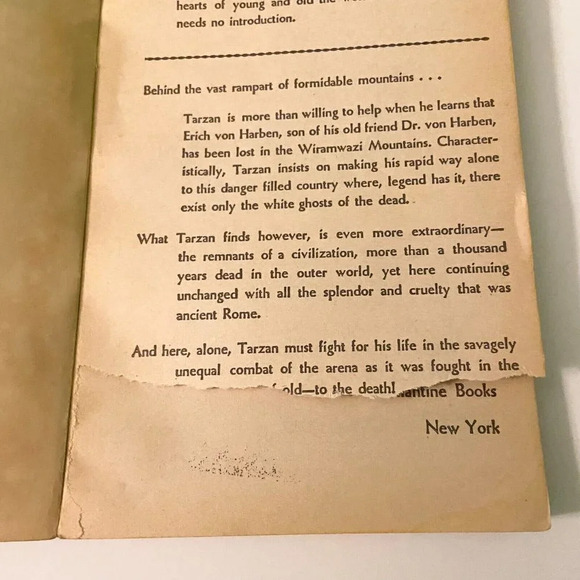 hearts of young and old the
needs no introduction.
Behind the vast rampart of formidable mountains . . .
Tarzan is more than willing to help when he learns that
Erich von Harben, son of his old friend Dr. von Harben,
has been lost in the Wiramwazi Mountains. Character-
istically, Tarzan insists on making his rapid way alone
to this danger filled country where, legend has it, there
exist only the white ghosts of the dead.
What Tarzan finds however, is even more extraordinary—
the remnants of a civilization, more than a thousand
years dead in the outer world, yet here continuing
unchanged with all the splendor and cruelty that was
ancient Rome.
And here, alone, Tarzan must fight for his life in the savagely
unequal combat of the arena as it was fought in the
old—to the death!
antine Books
New York